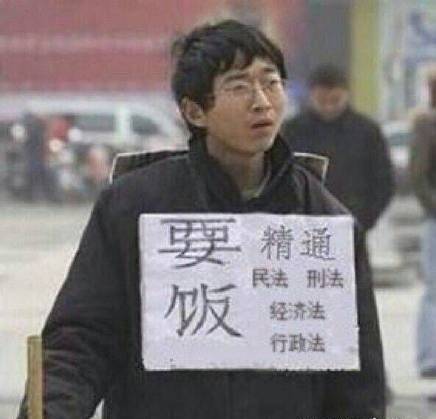 要饭
精通
民法 刑法
经济法
行政法